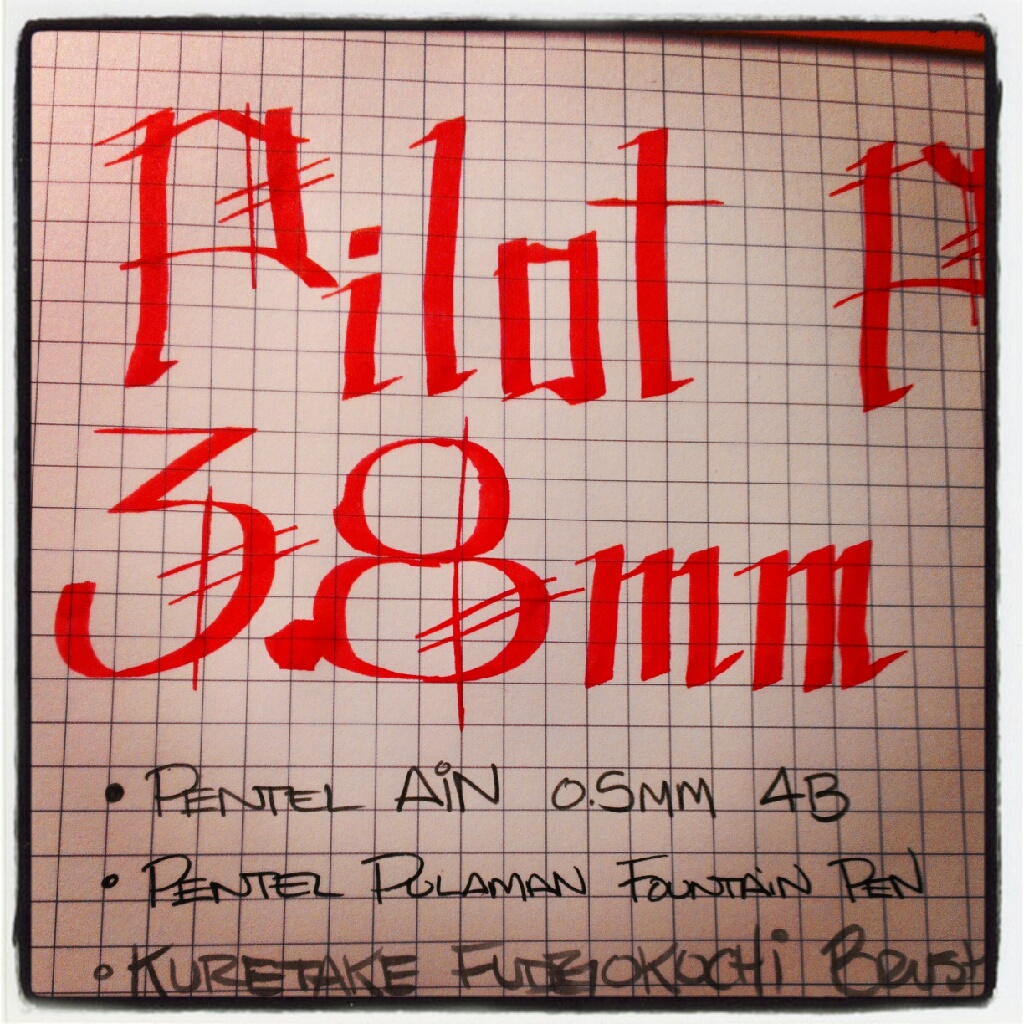 Pilot P
3.8mm
• PENTEL AiN 0.5MM 4B
• PENTEL PULAMAN FOUNTAiN PEN
• KURETAKE FUDEGOKOCHi BRUSH